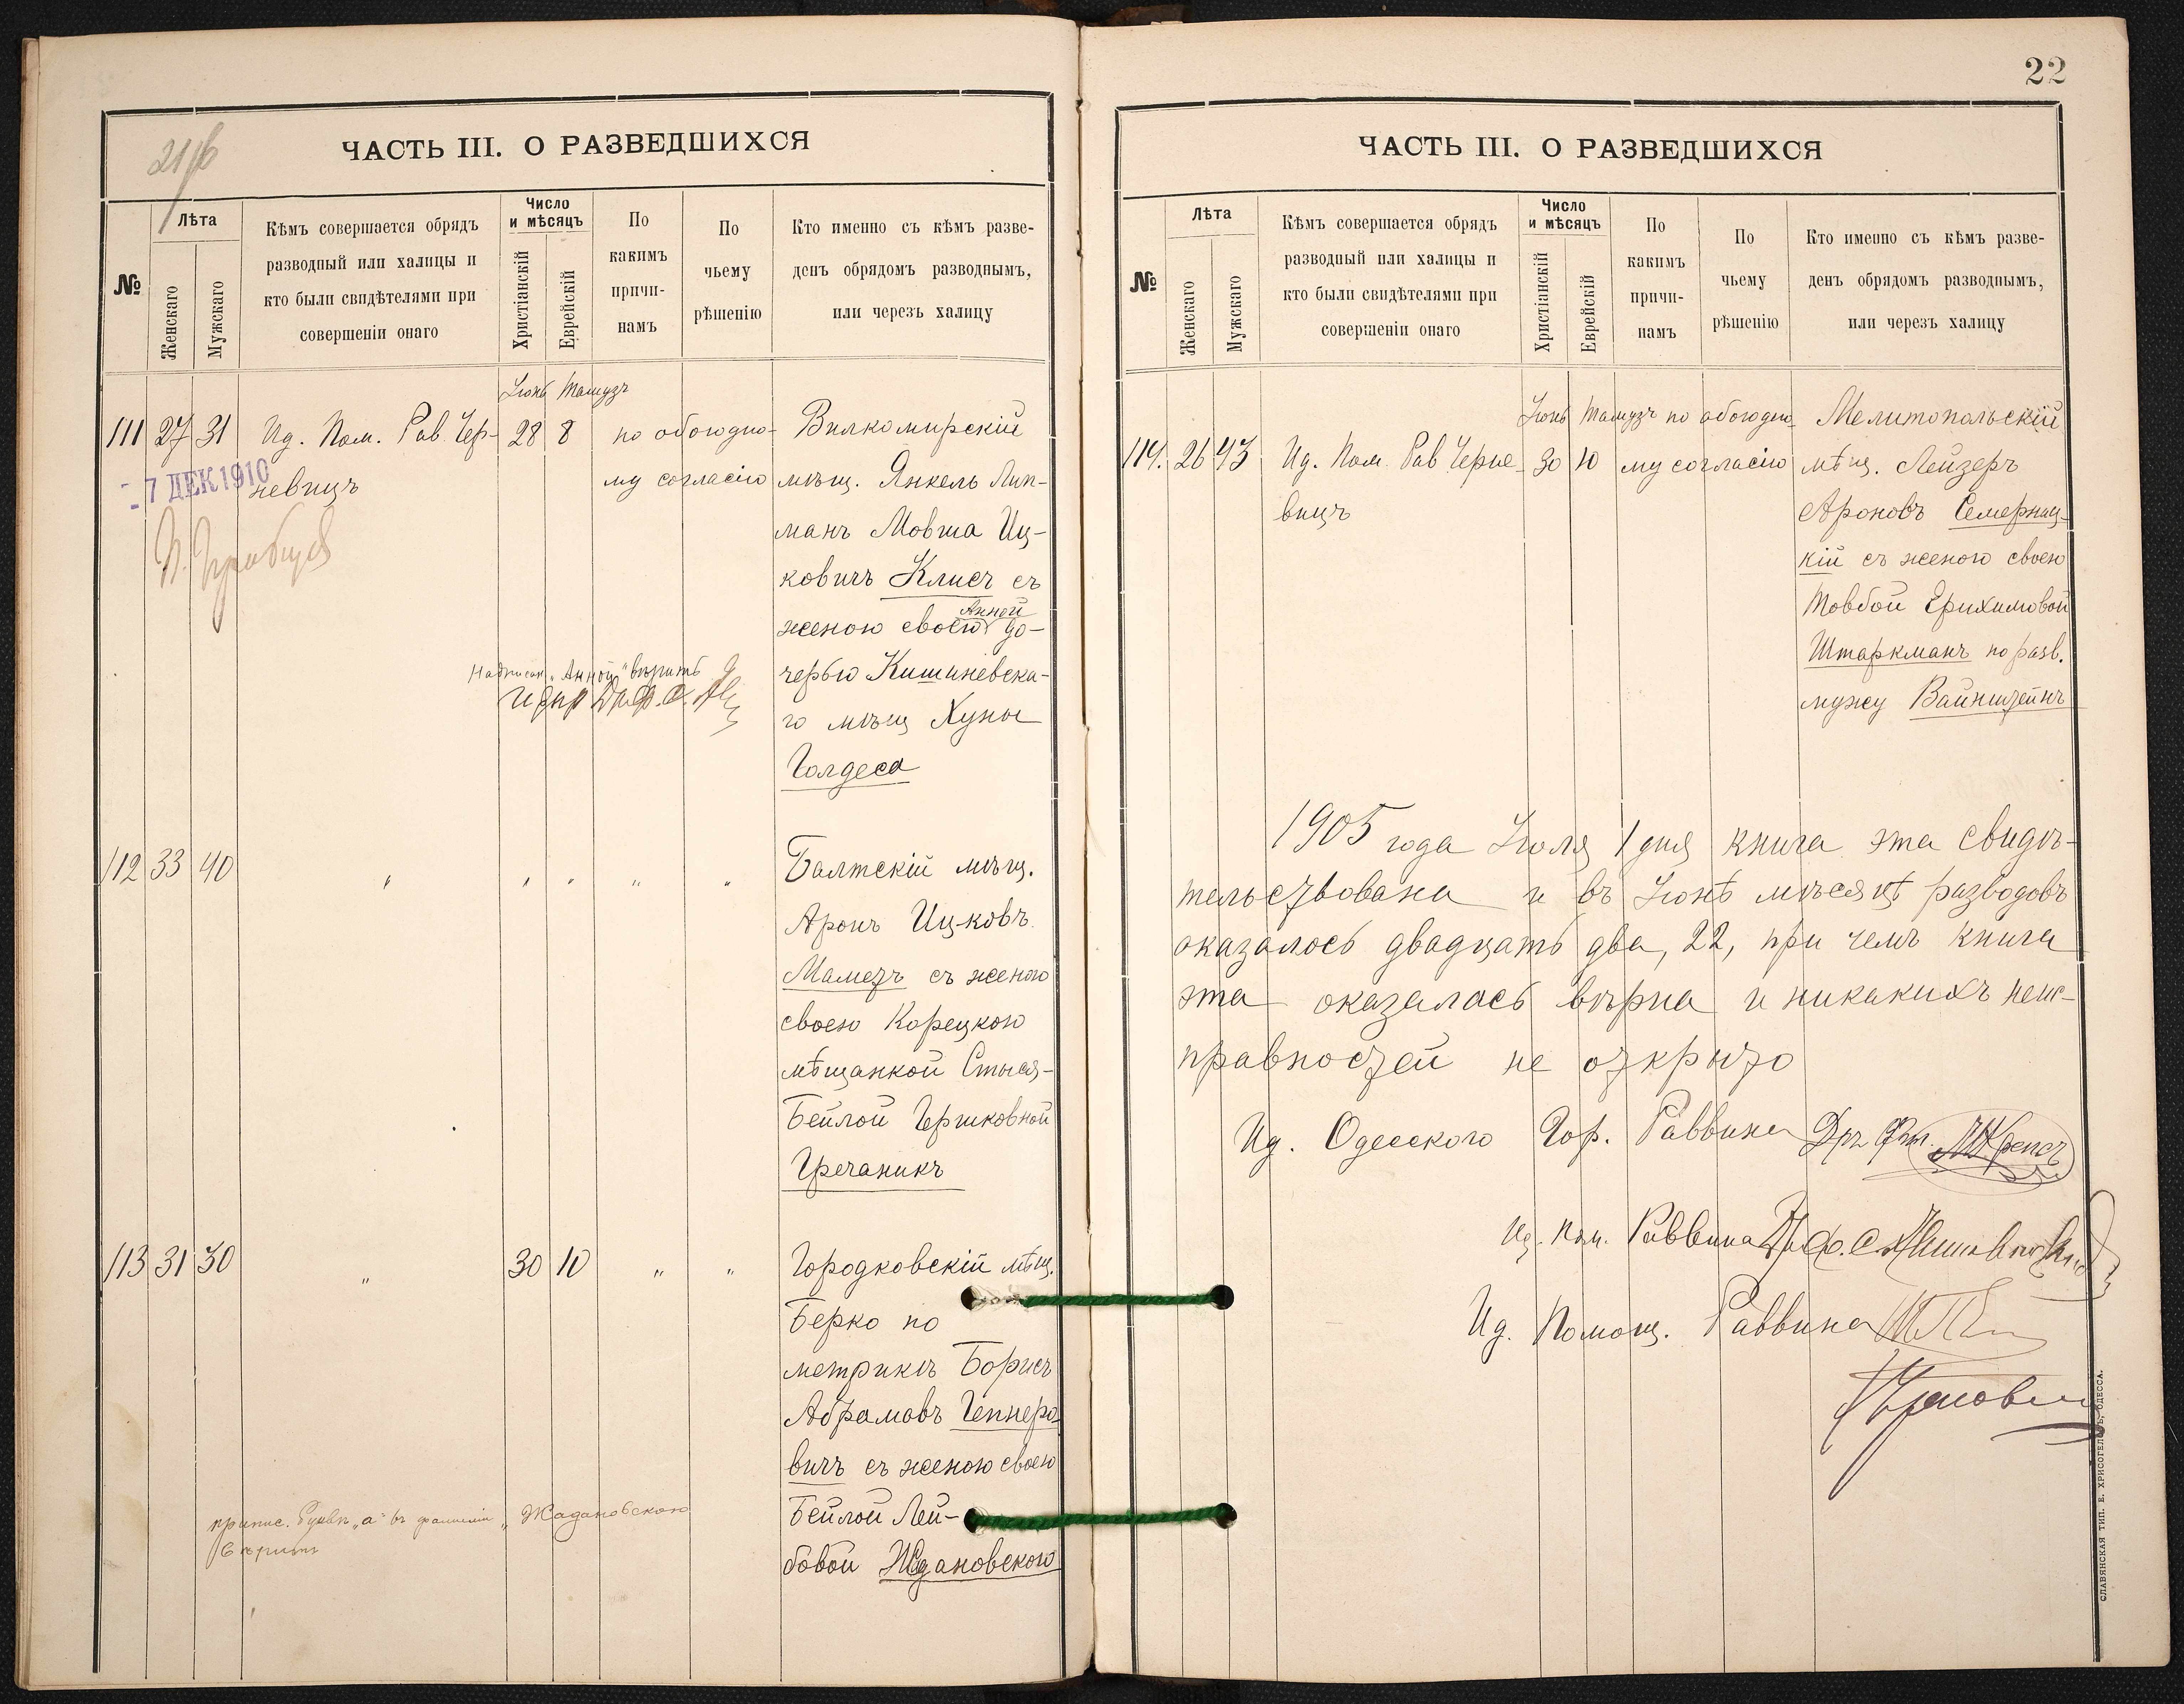 21 об
ЧАСТЬ III. О РАЗВЕДШИХСЯ
№
Лѣта
Женскаго
Мужскаго
Кѣмъ совершается обрядъ
разводный или халицы и
кто были свидѣтелями при
совершеніи онаго
Число
и мѣсяцъ
Христіанскій
Еврейскій
По
какимъ
причи-
намъ
По
чьему
рѣшенію
Кто именно съ кѣмъ разве-
денъ обрядомъ разводнымъ,
или черезъ халицу
Іюнь Тамузъ
111 27 31 Ид. Пом. Рав. Чер- 28 8 по обоюдно- Вилкомирскій
невицъ му согласію мѣщ. Янкель Лип-
- 7 ДЕК 1910
манъ Мовша Иц-
ковичъ Клисъ съ
Анной
женою своею до-
Надписан. „Анной" вѣрить
черью Кишиневска-
го мѣщ Хуны
Голдеса
112 33 40 " " " " " Балтскій мѣщ.
Аронъ Ицковъ
Маметъ съ женою
своею Корецкою
мѣщанкой Стыся-
Бейлой Гершковной
Гречаникъ
113 31 30 " 30 10 " " Городковскій мѣщ.
Берко по
метрикѣ Борисъ
Абрамовъ Геннеро-
вичъ съ женою своею
припис. буква „а" въ фамиліи „Жадановскою
Бейлой Лей-
вѣрить
бовой Жадановскою
22
ЧАСТЬ III. О РАЗВЕДШИХСЯ
№
Лѣта
Женскаго
Мужскаго
Кѣмъ совершается обрядъ
разводный или халицы и
кто были свидѣтелями при
совершеніи онаго
Число
и мѣсяцъ
Христіанскій
Еврейскій
По
какимъ
причи-
намъ
По
чьему
рѣшенію
Кто именно съ кѣмъ разве-
денъ обрядомъ разводнымъ,
или черезъ халицу
Іюнь Тамузъ по обоюдно- Мелитопольскій
114. 26 43 Ид. Пом. Рав Черне- 30 10 му согласію мѣщ. Лейзеръ
вицъ Ароновъ Семерниц-
кій съ женою своею
Товбой Ерихимовой
Штаркманъ по разв.
мужу Вайнштейнъ
1905 года Іюля 1 дня книга эта свидѣ-
тельствована и въ Іюнѣ мѣсяцѣ разводовъ
оказалось двадцать два, 22, при чемъ книга
эта оказалась вѣрна и никакихъ неис-
правностей не открыто
Ид. Одесскаго Гор. Раввина Дръ Фил. Крепсъ
Ид. Пом. Раввина
Ид. Помощ. Раввина
СЛАВЯНСКАЯ ТИП. Е. ХРИСОГЕЛОСЪ, ОДЕССА.